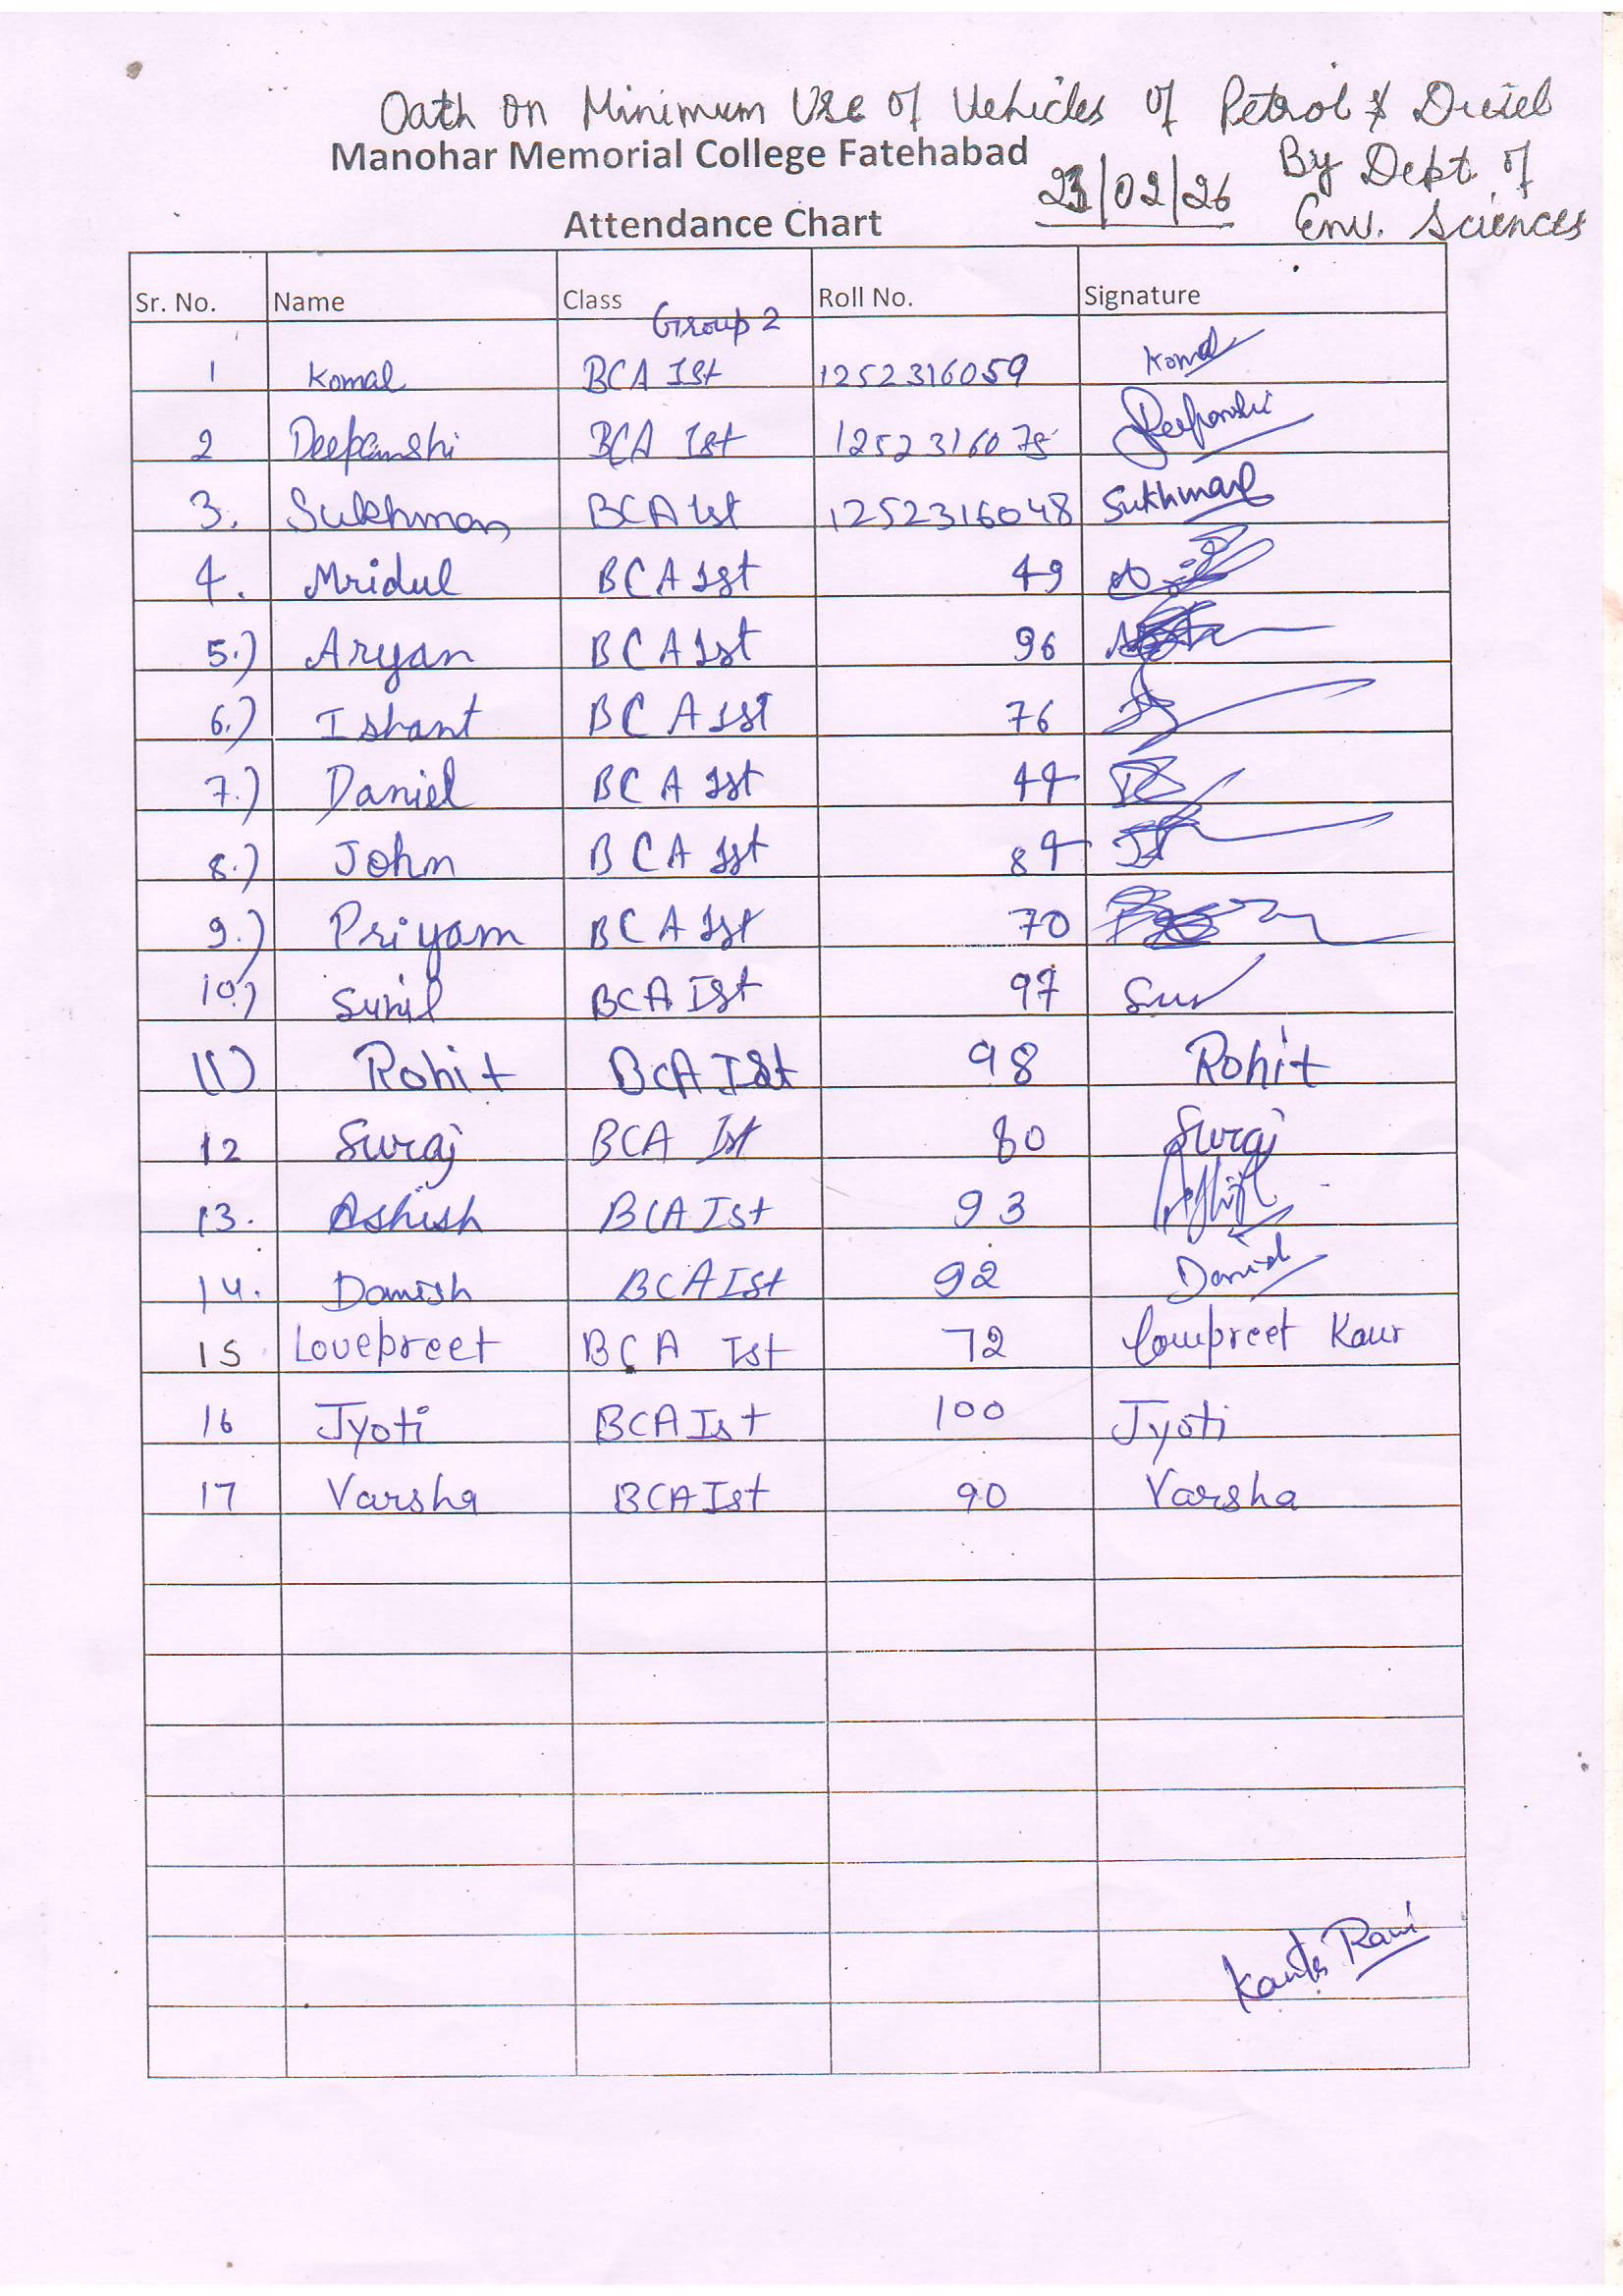 Oath on Minimum Use of Vehicles of Petrol & Diesel
Manohar Memorial College Fatehabad
By Dept. of
23/02/26
Env. Sciences
Attendance Chart
Sr. No. Name Class Roll No. Signature
Group 2
1 Komal BCA Ist 1252316059 Komal
2 Deepanshi BCA Ist 1252316075 Deepanshi
3. Sukhman BCA Ist 1252316048 Sukhman
4. Mridul BCA 1st 49
5.) Aryan BCA 1st 96
6.) Ishant BCA 1st 76
7.) Daniel BCA 1st 44
8.) John BCA 1st 84
9.) Priyam BCA 1st 70
10.) Sunil BCA Ist 97
11) Rohit BCA Ist 98 Rohit
12 Suraj BCA Ist 80 Suraj
13. Ashish BCA Ist 93 Ashish
14. Danish BCA Ist 92 Danish
15 Lovepreet BCA Ist 72 Lovepreet Kaur
16 Jyoti BCA Ist 100 Jyoti
17 Varsha BCA Ist 90 Varsha
Kanta Rani